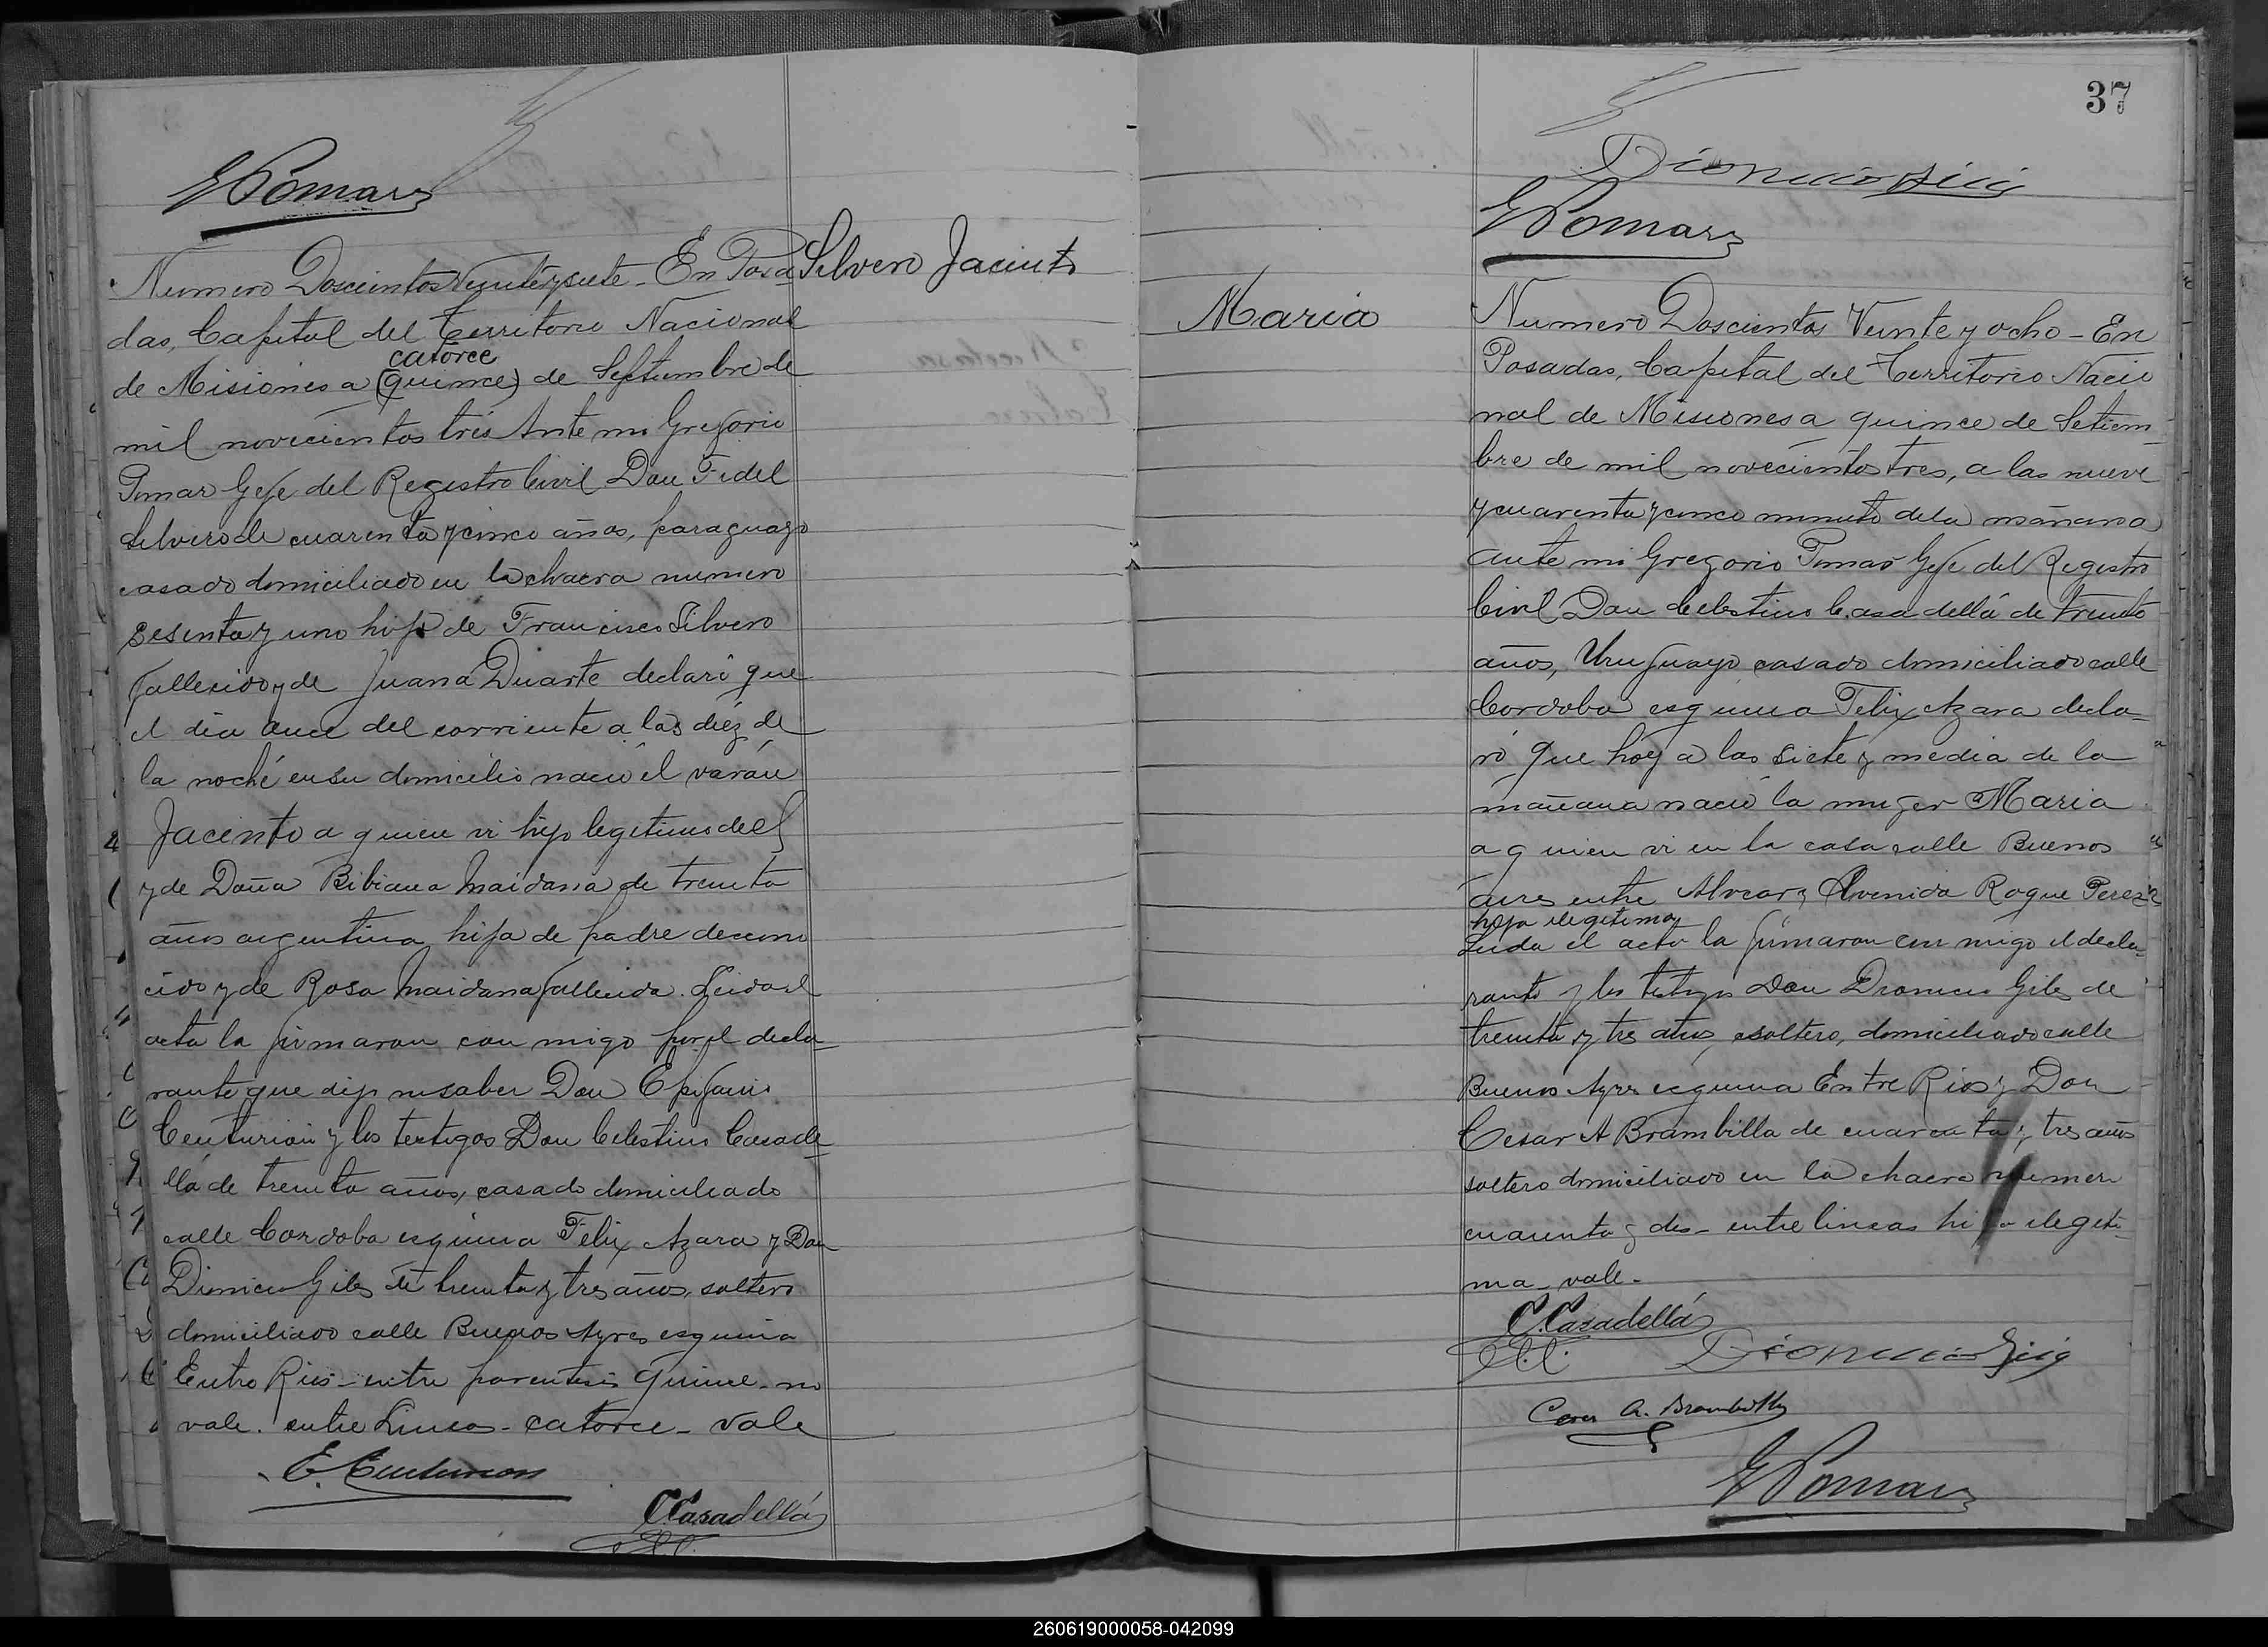 GPomar
Numero Doscientos Veinte y siete - En Posa
Silvero Jacinto
das, Capital del Territorio Nacional
catorce
de Misiones a (quince) de Septiembre de
mil novecientos tres Ante mi Gregorio
Pomar Gefe del Registro Civil Don Fidel
Silvero de cuarenta y cinco años, paraguayo
casado domiciliado en la chacra numero
sesenta y uno hijo de Francisco Silvero
fallecido y de Juana Duarte declaró que
el dia once del corriente a las diéz de
la noché en su domicilio nació el varón
Jacinto a quien vi hijo legitimo de el
y de Doña Bibiana Maidana de treinta
años argentina hija de padre descono
cido y de Rosa Maidana fallecida. Leida el
acta la firmaron con migo por el decla-
rante que dijo no saber Don Epifanio
Centurion y los testigos Don Celestino Casade-
llá de treinta años, casado domiciliado
calle Cordoba esquina Felix Azara y Don
Dionicio Giles de treinta y tres años, soltero
domiciliado calle Buenos Ayres esquina
Entre Rios - entre parentesis quince - no
vale. entre Lineas - catorce - vale
E. Centurion
C. Casadellá
37
GPomar
Maria
Numero Doscientos Veinte y ocho - En
Posadas, Capital del Territorio Nacio
nal de Misiones a quince de Setiem-
bre de mil novecientos tres, a las nueve
y cuarenta y cinco minuto de la mañana
ante mi Gregorio Pomar Gefe del Registro
Civil Don Celestino Casadellá de treinta
años, Uruguayo casado domiciliado calle
Cordoba esquina Felix Azara decla-
ró que hoy a las siete y media de la
mañana nació la muger Maria
a quien vi en la casa calle Buenos
aires entre Alvear y Avenida Roque Perez
hija ilegitima
Leida el acta la firmaron con migo el decla-
rante y los testigos Don Dionicio Giles de
treinta y tres años, soltero, domiciliado calle
Buenos Ayres esquina Entre Rios y Don
Cesar A Brambilla de cuarenta y tres años
soltero domiciliado en la chacra numero
cuarenta y dos - entre lineas hija ilegiti-
ma - vale -
C. Casadellá
Cesar A. Brambilla
GPomar
260619000058-042099